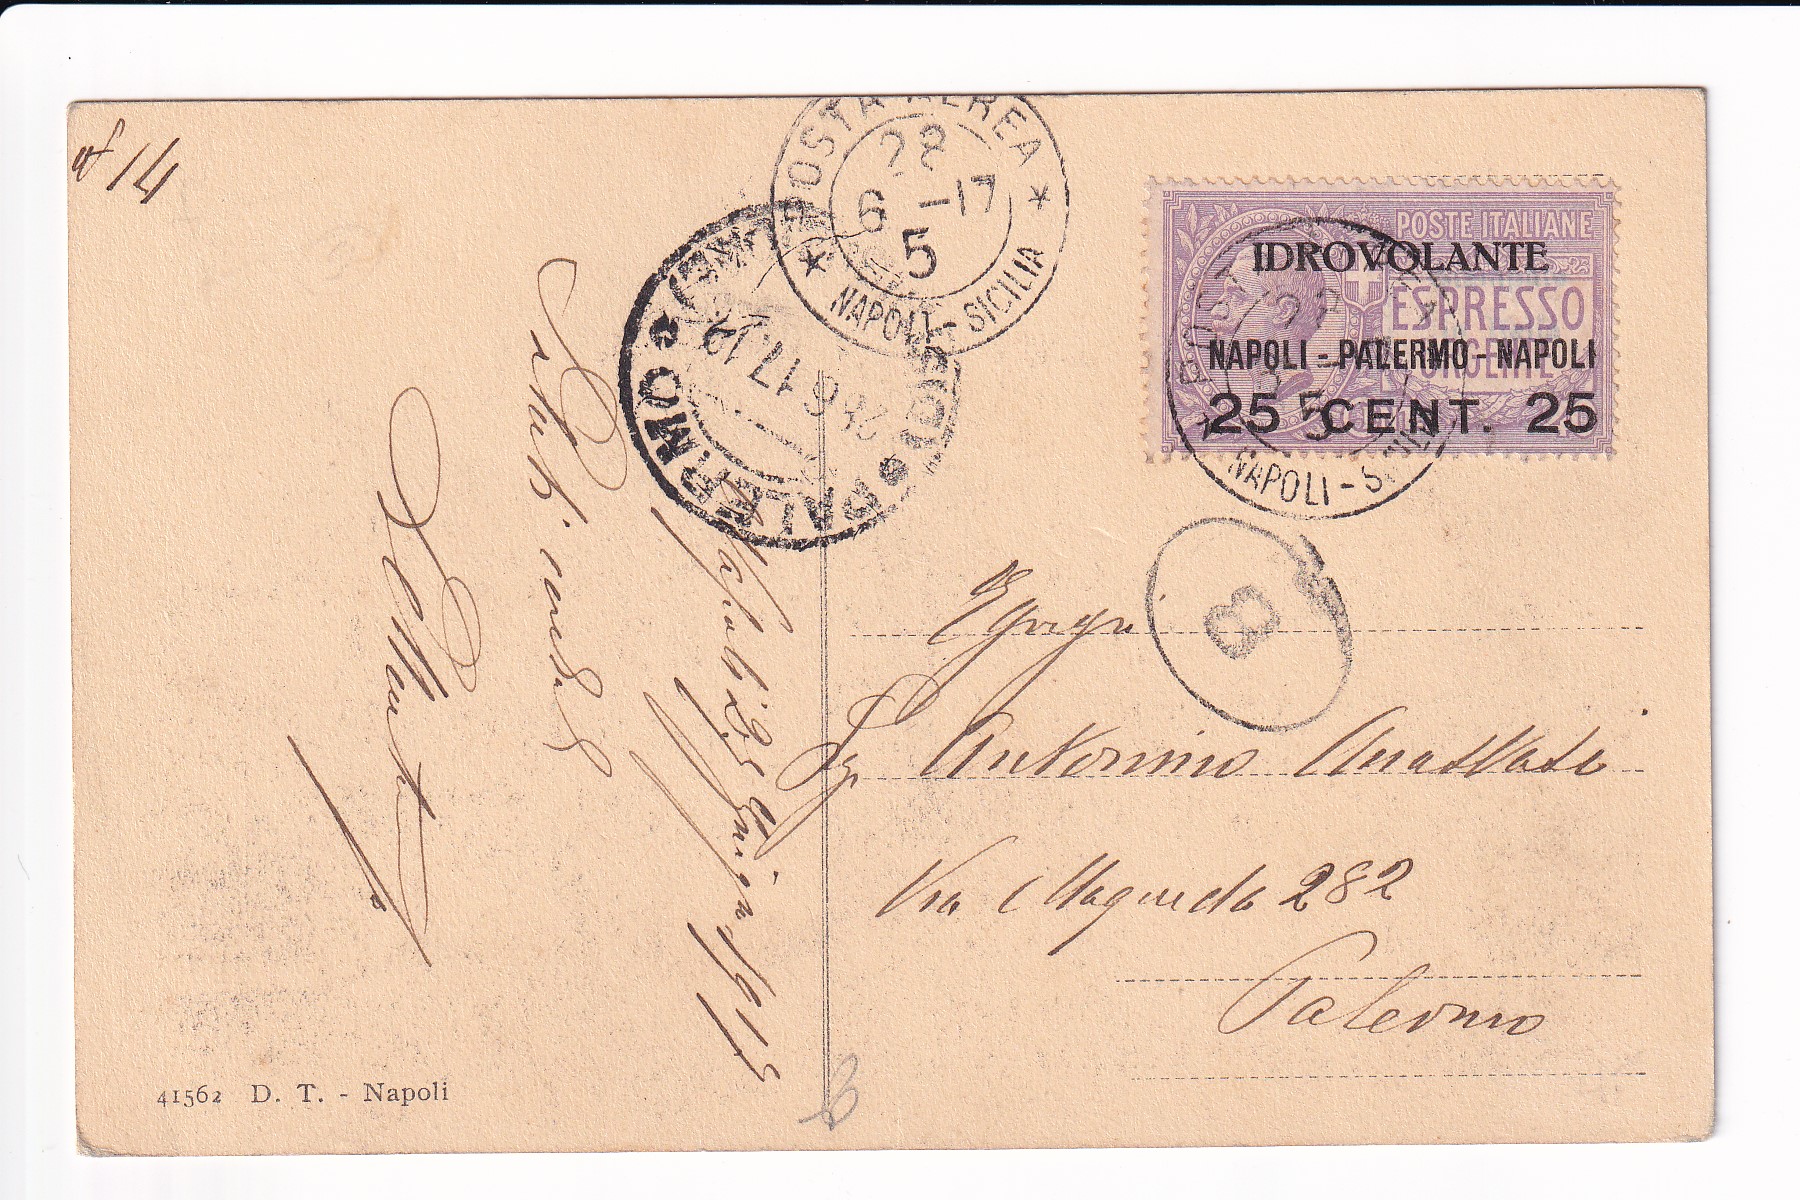 14
POSTA AEREA
28
6 -17
5
NAPOLI - SICILIA
PALERMO
28 6 17.12
POSTE ITALIANE
IDROVOLANTE
ESPRESSO
NAPOLI - PALERMO - NAPOLI
25 CENT. 25
NAPOLI - SICILIA
5
8
Napoli
Saluti cordiali
Egregi
Sig. Antonino Anastasi
Via Maqueda 282
Palermo
41562 D. T. - Napoli